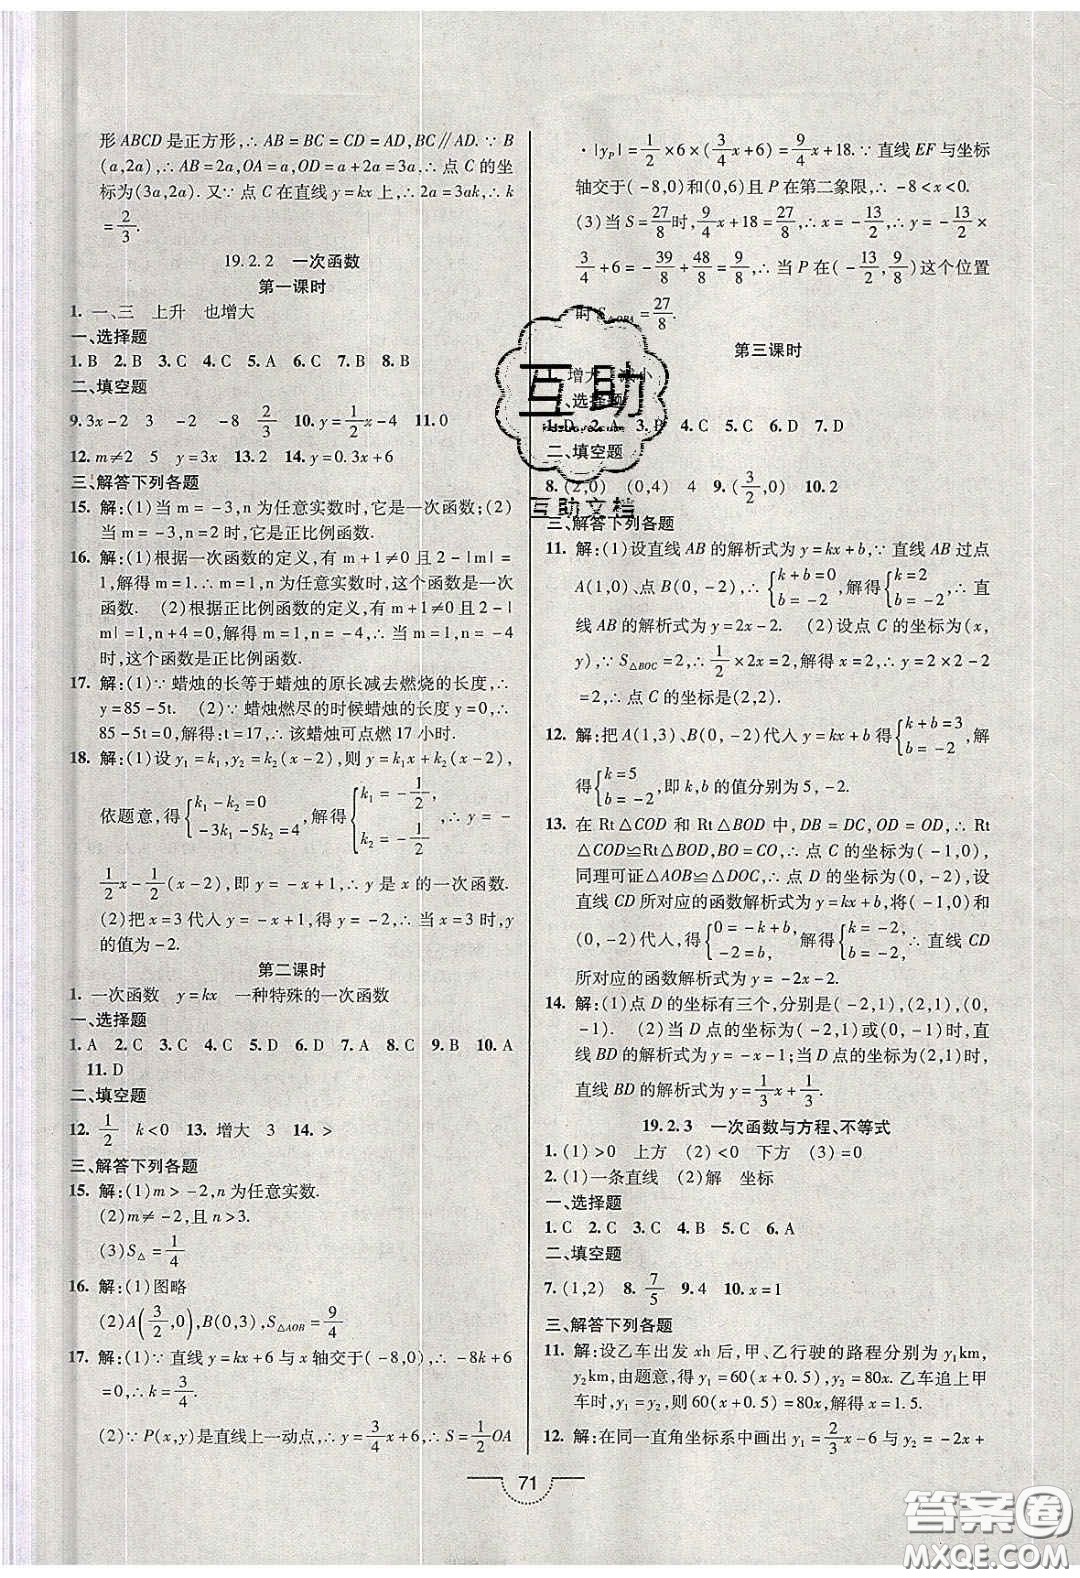 形ABCD是正方形,∴AB=BC=CD=AD,BC∥AD.∵B
(a,2a),∴AB=2a,OA=a,OD=a+2a=3a,∴点C的坐
标为(3a,2a).又∵点C在直线y=kx上,∴2a=3ak,∴k
=2/3.
19.2.2 一次函数
第一课时
1. 一、三 上升 也增大
一、选择题
1.B 2.B 3.C 4.C 5.C 6.C 7.B 8.B
二、填空题
9.3x-2 3 -2 -8 2/3 10.y=1/2x-4 11.0
12.m≠2 5 y=3x 13.2 14.y=0.3x+6
三、解答下列各题
15.解:(1)当m=-3,n为任意实数时,它是一次函数;(2)
当m=-3,n=2时,它是正比例函数.
16.解:(1)根据一次函数的定义,有m+1≠0且2-|m|=
1,解得m=1.∴m=1,n为任意实数时,这个函数是一次
函数. (2)根据正比例函数的定义,有m+1≠0且2-|
m|=1,n+4=0,解得m=1,n=-4,∴当m=1,n=-4
时,这个函数是正比例函数.
17.解:(1)∵蜡烛的长等于蜡烛的原长减去燃烧的长度,∴
y=85-5t. (2)∵蜡烛燃尽的时候蜡烛的长度y=0,∴
85-5t=0,解得:t=17,∴该蜡烛可点燃17小时.
18.解:(1)设y₁=k₁,y₂=k₂(x-2),则y=k₁x+k₂(x-2),
依题意,得{k₁-k₂=0 -3k₁-5k₂=4,解得{k₁=-1/2 k₂=-1/2,∴y=-
1/2x-1/2(x-2),即y=-x+1.∴y是x的一次函数.
(2)把x=3代入y=-x+1,得y=-2,∴当x=3时,y
的值为-2.
第二课时
1. 一次函数 y=kx 一种特殊的一次函数
一、选择题
1.A 2.C 3.C 4.C 5.B 6.C 7.A 8.C 9.B 10.A
11.D
二、填空题
12.1/2 k<0 13.增大 3 14.>
三、解答下列各题
15.解:(1)m>-2,n为任意实数.
(2)m≠-2,且n>3.
(3)S△=1/4
16.解:(1)图略
(2)A(3/2,0),B(0,3),S△AOB=9/4
17.解:(1)∵直线y=kx+6与x轴交于(-8,0),∴-8k+6
=0,∴k=3/4.
(2)∵P(x,y)是直线上一动点,∴y=3/4x+6,∴S=1/2OA
·|yP|=1/2×6×(3/4x+6)=9/4x+18.∵直线EF与坐标
轴交于(-8,0)和(0,6)且P在第二象限,∴-8<x<0.
(3)当S=27/8时,9/4x+18=27/8,∴x=-13/2,∴y=-13/2×
3/4+6=-39/8+48/8=9/8,∴当P在(-13/2,9/8)这个位置
时S△OPA=27/8.
第三课时
增大 减小
一、选择题
1.D 2.A 3.B 4.C 5.C 6.D 7.D
二、填空题
8.(2,0) (0,4) 4 9.(3/2,0) 10.2
三、解答下列各题
11.解:(1)设直线AB的解析式为y=kx+b,∵直线AB过点
A(1,0)、点B(0,-2),∴{k+b=0 b=-2,解得{k=2 b=-2,∴直
线AB的解析式为y=2x-2. (2)设点C的坐标为(x,
y),∵S△BOC=2,∴1/2×2x=2,解得x=2,∴y=2×2-2
=2,∴点C的坐标是(2,2).
12.解:把A(1,3)、B(0,-2)代入y=kx+b得{k+b=3 b=-2,解
得{k=5 b=-2,即k,b的值分别为5,-2.
13.在Rt△COD和Rt△BOD中,DB=DC,OD=OD,∴Rt
△COD≌Rt△BOD,BO=CO,∴点C的坐标为(-1,0),
同理可证△AOB≌△DOC,∴点D的坐标为(0,-2),设
直线CD所对应的函数解析式为y=kx+b,将(-1,0)和
(0,-2)代入,得{0=-k+b, -2=b,解得{k=-2, b=-2,∴直线CD
所对应的函数解析式为y=-2x-2.
14.解:(1)点D的坐标有三个,分别是(-2,1),(2,1),(0,
-1). (2)当D点的坐标为(-2,1)或(0,-1)时,直
线BD的解析式为y=-x-1;当D点的坐标为(2,1)时,
直线BD的解析式为y=1/3x+1/3.
19.2.3 一次函数与方程、不等式
1.(1)>0 上方 (2)<0 下方 (3)=0
2.(1)一条直线 (2)解 坐标
一、选择题
1.C 2.C 3.C 4.C 5.C 6.A
二、填空题
7.(1,2) 8.7/5 9.4 10.x=1
三、解答下列各题
11.解:设乙车出发xh后,甲、乙行驶的路程分别为y₁km,
y₂km,由题意,得y₁=60(x+0.5),y₂=80x.乙车追上甲
车时,y₁=y₂,则60(x+0.5)=80x,解得x=1.5.
12.解:在同一直角坐标系中画出y₁=2/3x-6与y₂=-2x+
71
互助
互助文档
答案圈
MXQE.COM